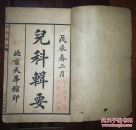 戊辰春三月
兒科輯要
北京天華館印